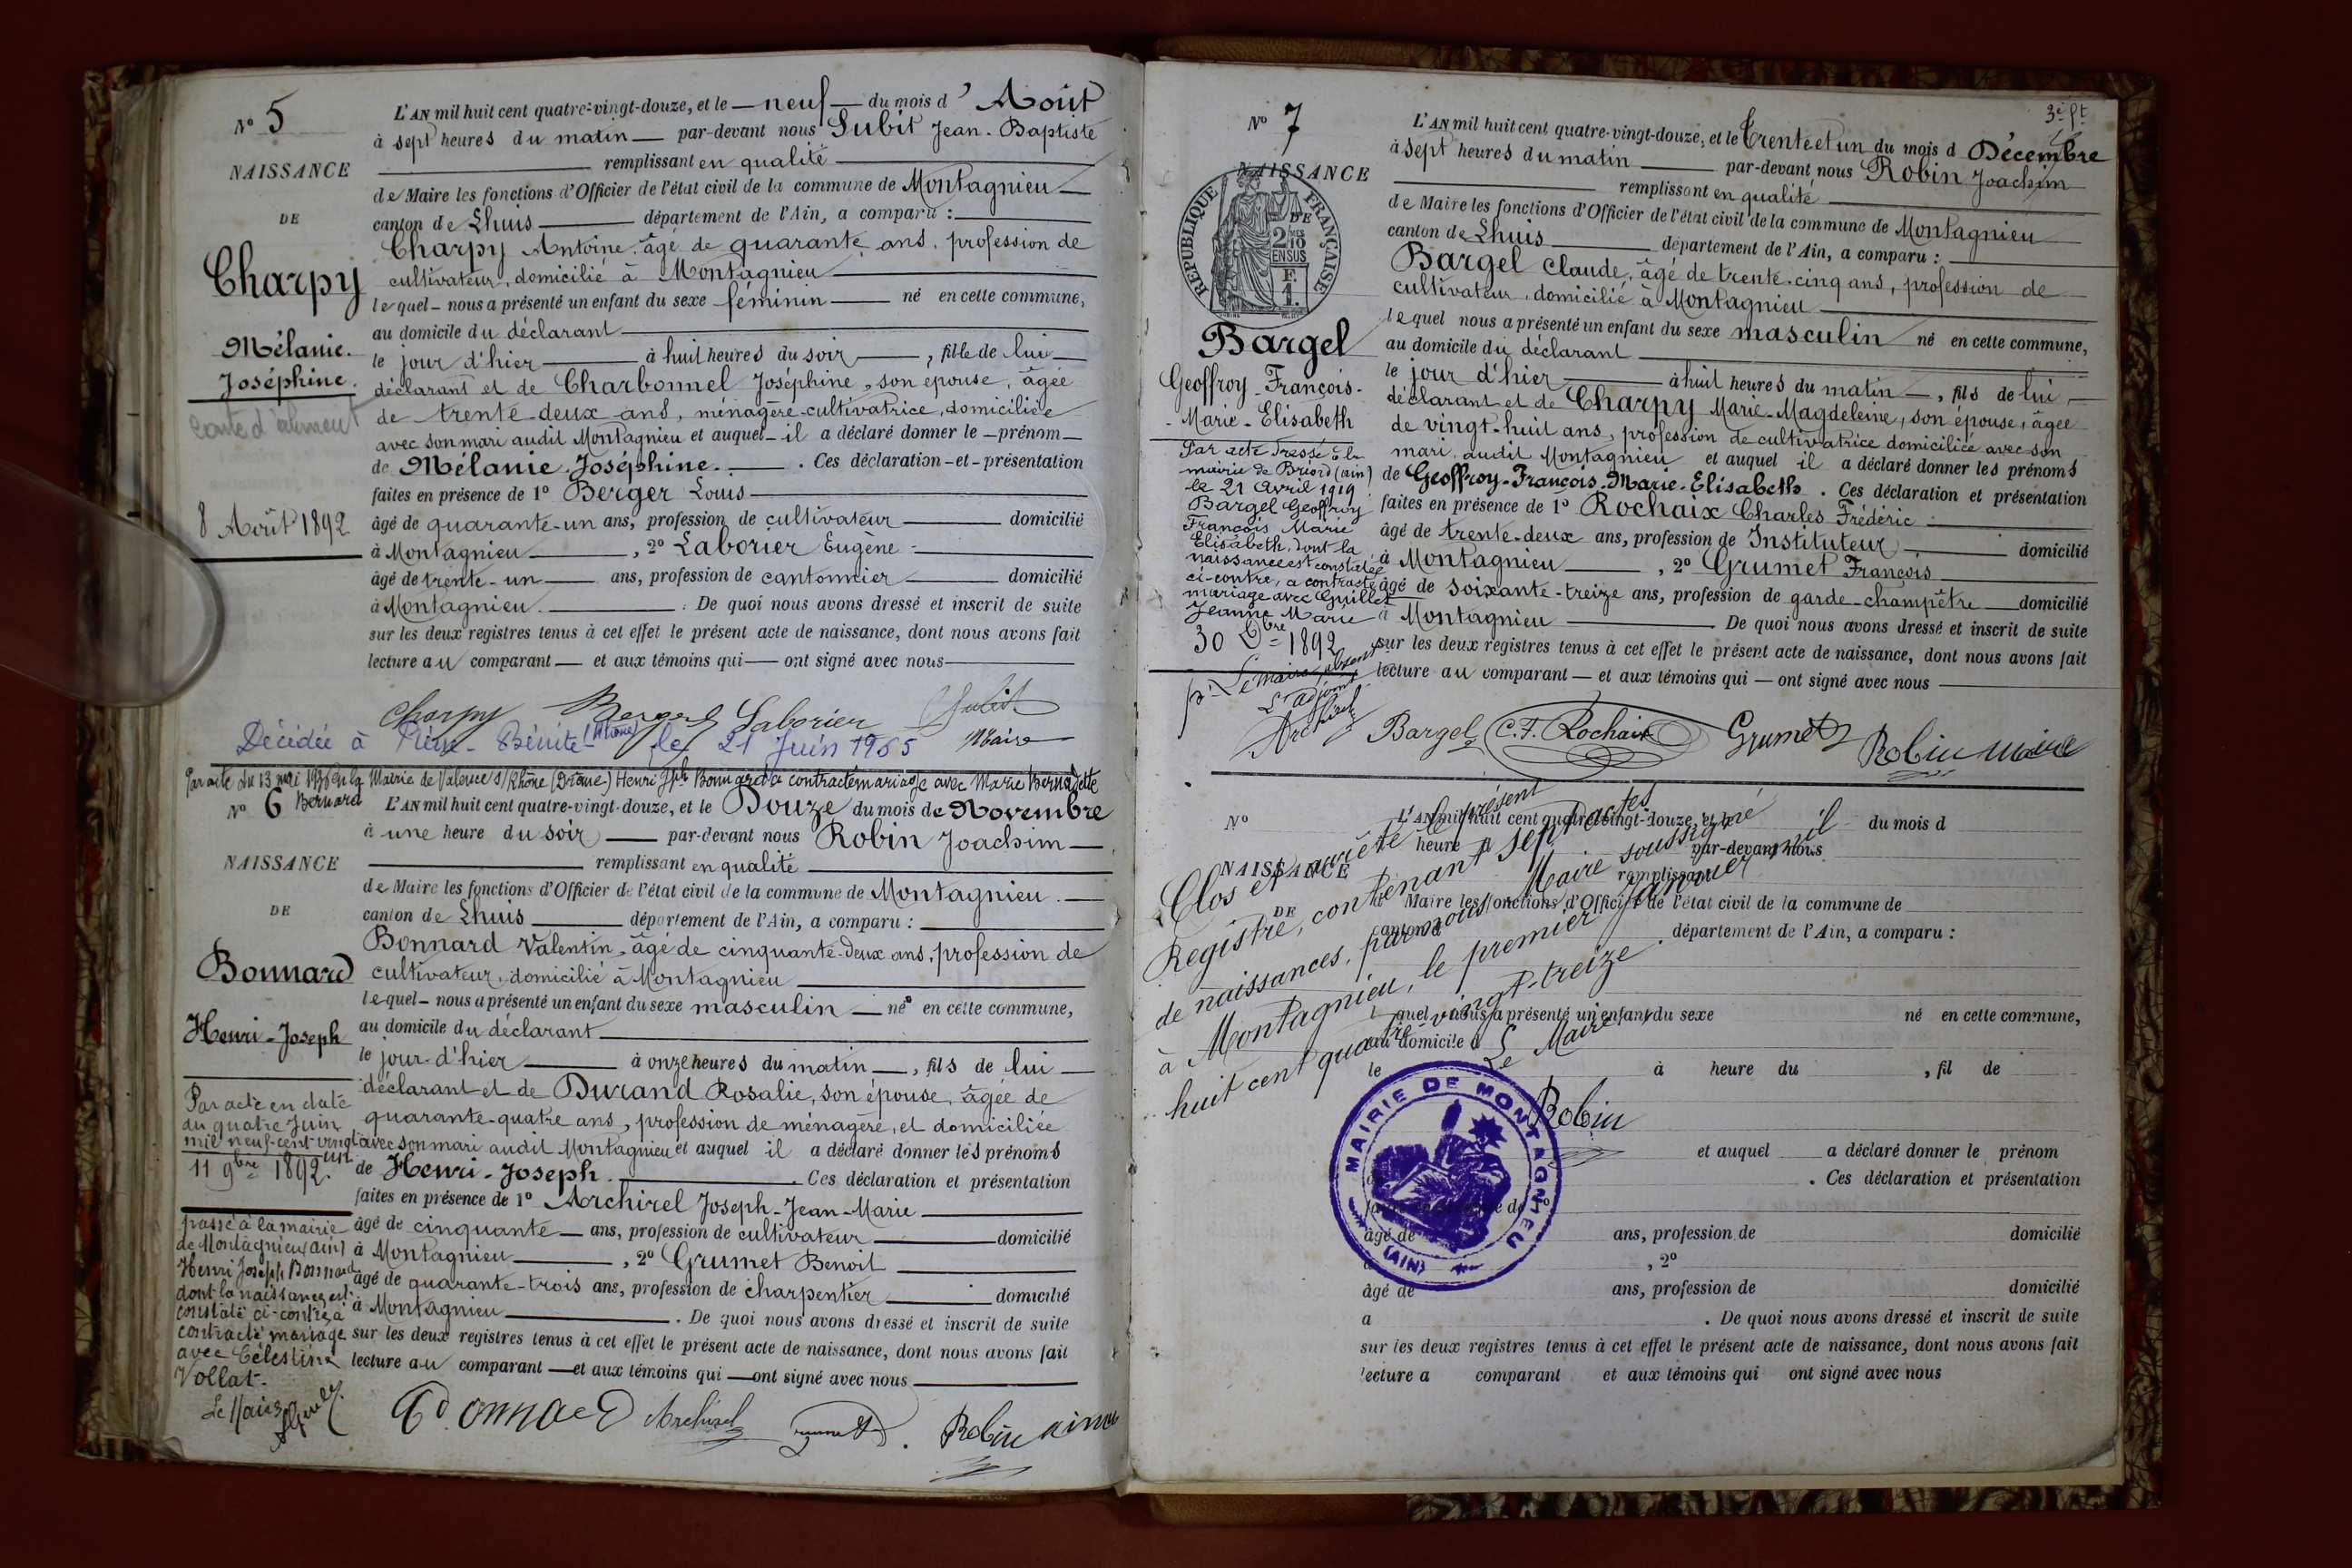 N° 5
NAISSANCE
DE
Charpy
Mélanie.
Joséphine.
8 Août 1892
L'AN mil huit cent quatre-vingt-douze, et le neuf du mois d' Août
à sept heures du matin par-devant nous Subit Jean-Baptiste
remplissant en qualité
de Maire les fonctions d'Officier de l'état civil de la commune de Montagnieu
canton de Lhuis département de l'Ain, a comparu :
Charpy Antoine, âgé de quarante ans, profession de
cultivateur, domicilié à Montagnieu
lequel nous a présenté un enfant du sexe féminin né en cette commune,
au domicile du déclarant
le jour d'hier à huit heures du soir, fille de lui
déclarant et de Charbonnel Joséphine, son épouse, âgée
de trente-deux ans, ménagère-cultivatrice, domiciliée
avec son mari audit Montagnieu et auquel il a déclaré donner le prénom
de Mélanie Joséphine. Ces déclaration et présentation
faites en présence de 1° Berger Louis
âgé de quarante-un ans, profession de cultivateur domicilié
à Montagnieu, 2° Laborier Eugène
âgé de trente-un ans, profession de cantonnier domicilié
à Montagnieu. De quoi nous avons dressé et inscrit de suite
sur les deux registres tenus à cet effet le présent acte de naissance, dont nous avons fait
lecture au comparant et aux témoins qui ont signé avec nous
Charpy Berger Laborier Subit
Maire
Décédée à Pierre-Bénite (Rhône) le 21 Juin 1965
Par acte du 13 mai en la Mairie de Valence s/Rhône (Drôme) Henri Jph Bonnard a contracté mariage avec Marie Bernadette
Bernard
N° 6
NAISSANCE
DE
Bonnard
Henri-Joseph
Par acte en date
du quatre Juin
mil neuf-cent-vingt
un
11 9bre 1892
passé à la mairie
de Montagnieu (ain)
Henri Joseph Bonnard
dont la naissance est
constaté ci-contre, a
contracté mariage
avec Célestine
Vollat.
Le Maire
L'AN mil huit cent quatre-vingt-douze, et le Douze du mois de Novembre
à une heure du soir par-devant nous Robin Joachim
remplissant en qualité
de Maire les fonctions d'Officier de l'état civil de la commune de Montagnieu.
canton de Lhuis département de l'Ain, a comparu :
Bonnard Valentin, âgé de cinquante-deux ans, profession de
cultivateur, domicilié à Montagnieu
lequel nous a présenté un enfant du sexe masculin né en cette commune,
au domicile du déclarant
le jour d'hier à onze heures du matin, fils de lui
déclarant et de Durand Rosalie, son épouse, âgée de
quarante-quatre ans, profession de ménagère, et domiciliée
avec son mari audit Montagnieu et auquel il a déclaré donner les prénoms
de Henri-Joseph. Ces déclaration et présentation
faites en présence de 1° Archirel Joseph-Jean-Marie
âgé de cinquante ans, profession de cultivateur domicilié
à Montagnieu, 2° Grumet Benoit
âgé de quarante-trois ans, profession de charpentier domicilié
à Montagnieu. De quoi nous avons dressé et inscrit de suite
sur les deux registres tenus à cet effet le présent acte de naissance, dont nous avons fait
lecture au comparant et aux témoins qui ont signé avec nous
Bonnard Archirel Grumet Robin maire
3e ft
N° 7
NAISSANCE
DE
REPUBLIQUE FRANÇAISE
2/10 EN SUS
Bargel
Geoffroy-François-
Marie-Elisabeth
Par acte dressé à la
mairie de Briord (ain)
le 21 avril 1919
Bargel Geoffroy
François Marie
Elisabeth, dont la
naissance est constatée
ci-contre, a contracté
mariage avec Guillet
Jeanne Marie
30 Dbre 1892
pr Le maire absent
L'adjoint
Archirel
L'AN mil huit cent quatre-vingt-douze, et le Trente et un du mois d Décembre
à sept heures du matin par-devant nous Robin Joachim
remplissant en qualité
de Maire les fonctions d'Officier de l'état civil de la commune de Montagnieu
canton de Lhuis département de l'Ain, a comparu :
Bargel Claude, âgé de trente-cinq ans, profession de
cultivateur, domicilié à Montagnieu
lequel nous a présenté un enfant du sexe masculin né en cette commune,
au domicile du déclarant
le jour d'hier à huit heures du matin, fils de lui
déclarant et de Charpy Marie-Magdeleine, son épouse, âgée
de vingt-huit ans, profession de cultivatrice domiciliée avec son
mari audit Montagnieu et auquel il a déclaré donner les prénoms
de Geoffroy-François-Marie-Elisabeth. Ces déclaration et présentation
faites en présence de 1° Rochaix Charles Frédéric
âgé de trente-deux ans, profession de Instituteur domicilié
à Montagnieu, 2° Grumet François
âgé de soixante-treize ans, profession de garde-champêtre domicilié
à Montagnieu De quoi nous avons dressé et inscrit de suite
sur les deux registres tenus à cet effet le présent acte de naissance, dont nous avons fait
lecture au comparant et aux témoins qui ont signé avec nous
Bargel C.F. Rochaix Grumet Robin maire
N°
NAISSANCE
DE
L'AN mil huit cent quatre-vingt-douze, et le du mois d
heure par-devant nous
remplissant
Maire les fonctions d'Officier de l'état civil de la commune de
canton d département de l'Ain, a comparu :
quel nous a présenté un enfant du sexe né en cette commune,
au domicile d
le à heure du , fil de
et auquel a déclaré donner le prénom
de . Ces déclaration et présentation
faites en présence de 1°
âgé de ans, profession de domicilié
à , 2°
âgé de ans, profession de domicilié
a . De quoi nous avons dressé et inscrit de suite
sur les deux registres tenus à cet effet le présent acte de naissance, dont nous avons fait
lecture a comparant et aux témoins qui ont signé avec nous
Clos et arrêté le présent
Registre, contenant sept actes
de naissances, par nous Maire soussigné
à Montagnieu, le premier Janvier mil
huit cent quatre-vingt-treize.
Le Maire,
Robin
MAIRIE DE MONTAGNIEU
(AIN)